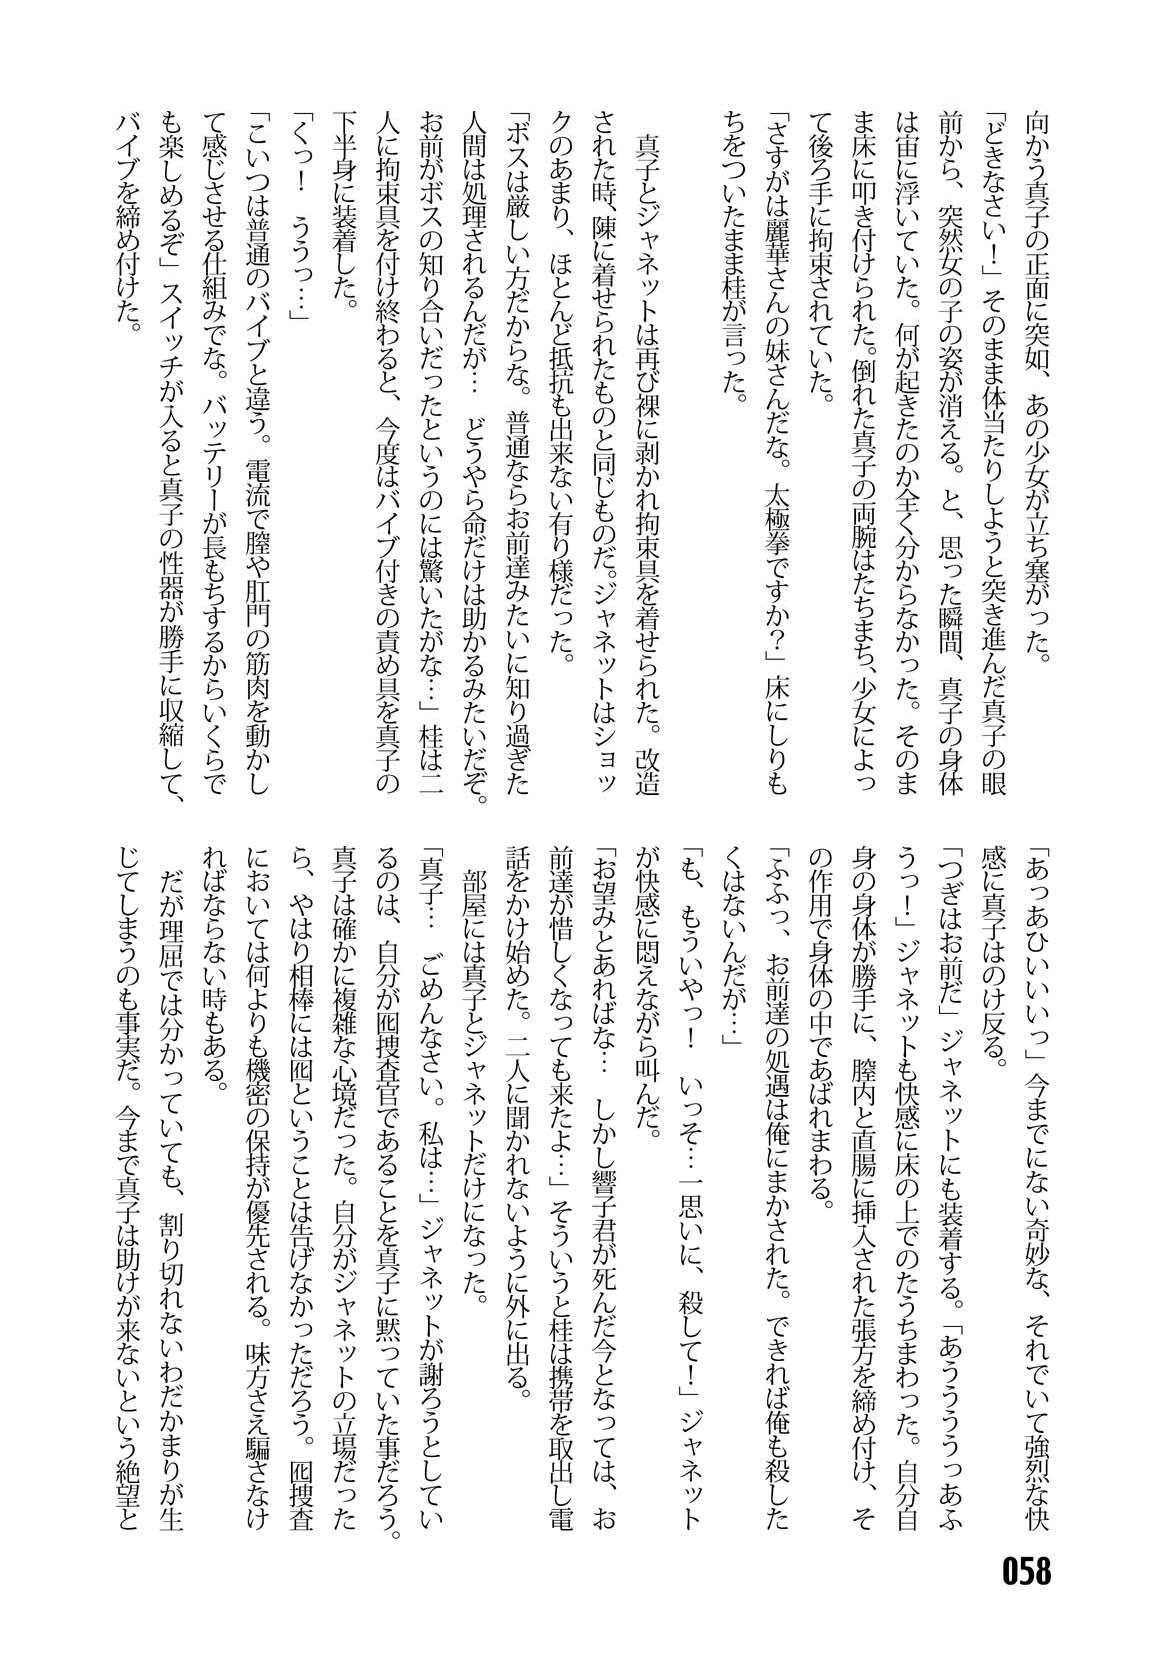 向かう真子の正面に突如、あの少女が立ち塞がった。
「どきなさい！」そのまま体当たりしようと突き進んだ真子の眼
前から、突然女の子の姿が消える。と、思った瞬間、真子の身体
は宙に浮いていた。何が起きたのか全く分からなかった。そのま
ま床に叩き付けられた。倒れた真子の両腕はたちまち、少女によっ
て後ろ手に拘束されていた。
「さすがは麗華さんの妹さんだな。太極拳ですか？」床にしりも
ちをついたまま桂が言った。
真子とジャネットは再び裸に剥かれ拘束具を着せられた。改造
された時、陳に着せられたものと同じものだ。ジャネットはショッ
クのあまり、ほとんど抵抗も出来ない有り様だった。
「ボスは厳しい方だからな。普通ならお前達みたいに知り過ぎた
人間は処理されるんだが…　どうやら命だけは助かるみたいだぞ。
お前がボスの知り合いだったというのには驚いたがな…」桂は二
人に拘束具を付け終わると、今度はバイブ付きの責め具を真子の
下半身に装着した。
「くっ！　ううっ…」
「こいつは普通のバイブと違う。電流で膣や肛門の筋肉を動かし
て感じさせる仕組みでな。バッテリーが長もちするからいくらで
も楽しめるぞ」スイッチが入ると真子の性器が勝手に収縮して、
バイブを締め付けた。
「あっあひいいいっ」今までにない奇妙な、それでいて強烈な快
感に真子はのけ反る。
「つぎはお前だ」ジャネットにも装着する。「あうううううっあふ
うっ！」ジャネットも快感に床の上でのたうちまわった。自分自
身の身体が勝手に、膣内と直腸に挿入された張方を締め付け、そ
の作用で身体の中であばれまわる。
「ふふっ、お前達の処遇は俺にまかされた。できれば俺も殺した
くはないんだが…」
「も、もういやっ！　いっそ…一思いに、殺して！」ジャネット
が快感に悶えながら叫んだ。
「お望みとあればな…　しかし響子君が死んだ今となっては、お
前達が惜しくなっても来たよ…」そういうと桂は携帯を取出し電
話をかけ始めた。二人に聞かれないように外に出る。
部屋には真子とジャネットだけになった。
「真子…　ごめんなさい。私は…」ジャネットが謝ろうとしてい
るのは、自分が囮捜査官であることを真子に黙っていた事だろう。
真子は確かに複雑な心境だった。自分がジャネットの立場だった
ら、やはり相棒には囮ということは告げなかっただろう。囮捜査
においては何よりも機密の保持が優先される。味方さえ騙さなけ
ればならない時もある。
だが理屈では分かっていても、割り切れないわだかまりが生
じてしまうのも事実だ。今まで真子は助けが来ないという絶望と
058